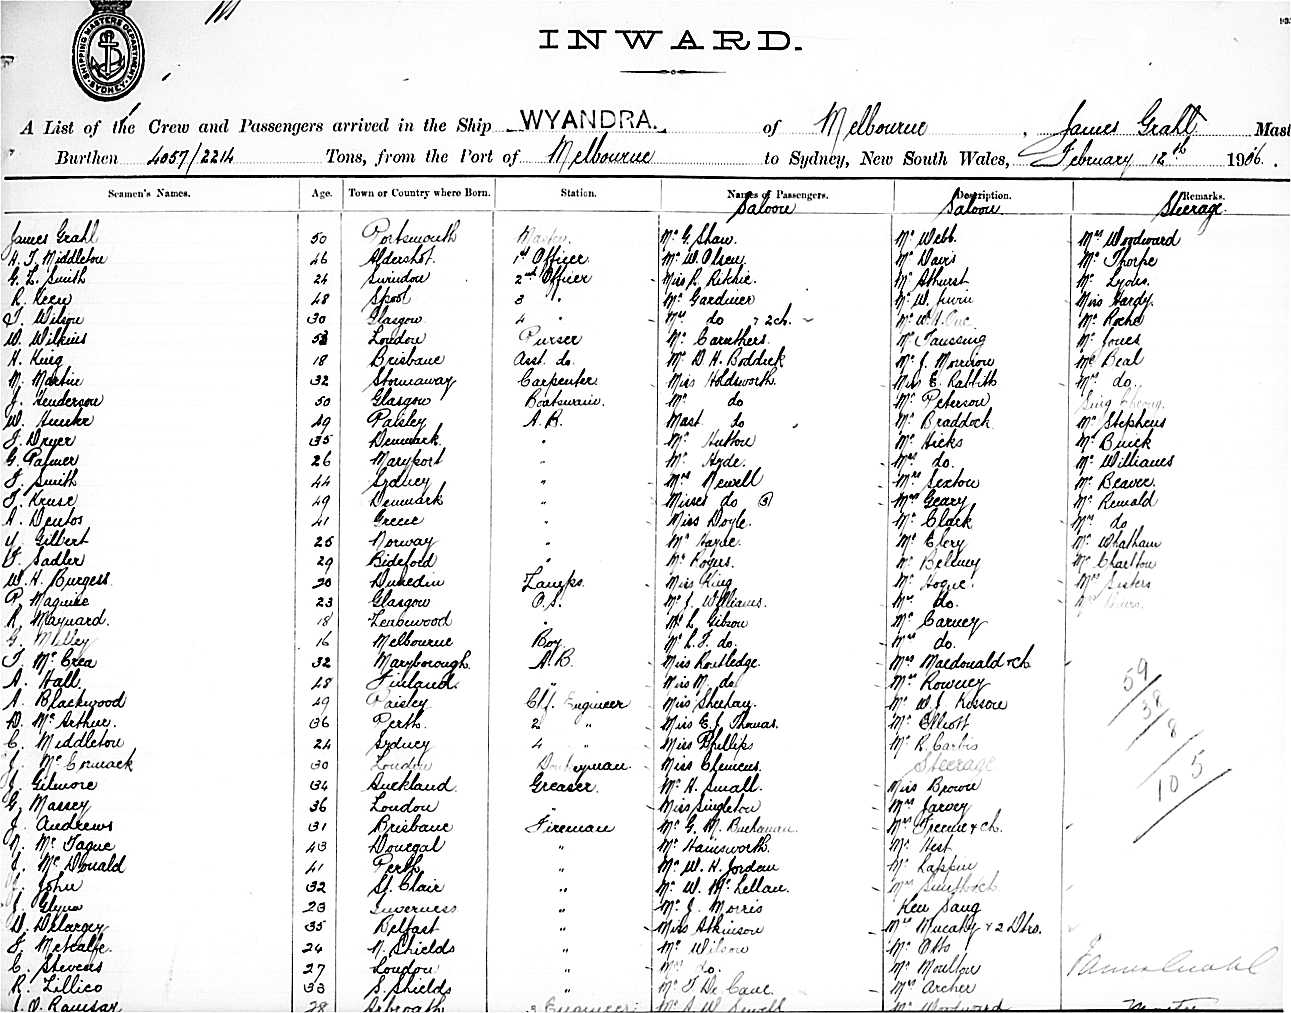 SHIPPING MASTERS DEPARTMENT SYDNEY
INWARD.
A List of the Crew and Passengers arrived in the Ship WYANDRA. of Melbourne, James Grahl Mast
Burthen 4057/2214 Tons, from the Port of Melbourne to Sydney, New South Wales, February 12th 1916.
Seamen's Names. Age. Town or Country where Born. Station. Names of Passengers. Description. Remarks.
Saloon Saloon Steerage
James Grahl 50 Portsmouth Master. Mr G. Shaw. Mr Webb. Mrs Woodward
H. J. Middleton 46 Aldershot. 1st Officer Mr W. Olsen. Mr Davis Mr Thorpe
G. L. Smith 24 Swindon 2nd Officer Miss R. Ritchie. Mr Athurst Mr Lyons.
R. 48 3 " Mr Gardiner Mr W. Miss Hardy.
T. Wilson 30 Glasgow 4 " Mrs do & 2ch. Mr Roche
W. Wilkins London Purser Mr Caruthers. Mr Taussing Mr Jones
H. King 18 Brisbane Asst. do. Mr D. H. Boddick Mr J. Morrison Mr Beal
M. Martin 32 Stornaway Carpenter Miss Holdsworth. Miss E. Rabbits Mrs do.
J. Henderson 50 Glasgow Boatswain. do Mr Peterson
W. 49 Paisley A.B. Mast do Mr Braddock Mr Stephens
J. Dryer 35 Denmark. " Mr Hutton Mr Hicks Mr Buick
G. Palmer 26 Maryport " Mr Hyde. Mrs do. Mr Williams
F. Smith 44 Sydney " Mrs Newell Mrs Sexton Mr Beaver.
F. Kruse 49 Denmark " Misses do (3) Mrs Geary Mr Renald
A. Dentos 41 Greece " Miss Doyle. Mr Clark Mrs do
Y. Gilbert 25 Norway " Mr Mr Clery Mr Whatham
F. Sadler 29 Bideford " Mr Rogers. Mr Mr Charlton
W. H. Burgess 20 Dunedin Lamps. Miss King Mr Hogue. Sisters
P. Maguire 23 Glasgow O.S. Mr J. Williams. Mrs do.
R. Maynard. 18 " Mr L. Gibson Mr Carney
G. 16 Melbourne Boy. Mr L. F. do. Mrs do.
J. McCrea 32 Maryborough A.B. Miss Routledge. Mrs Macdonald & ch
A. Hall. 48 Finland. " Miss M. do Mrs Rowney
A. Blackwood 49 Paisley Chf. Engineer Miss Sheehan. Mr W. J. 59
D. McArthur. 36 Perth. 2 " Miss E. J. Thomas. Mr Elliott 38
C. Middleton 24 Sydney 4 " Miss Phillips Mr R. Carbis 8
J. McCormack 30 London Donkeyman. Miss Clemens. Steerage
J. Gilmore 34 Auckland. Greaser. Mr H. Small. Miss Brown 105
G. Massey 36 London " Miss Singleton Mrs Jarvey
J. Andrews 31 Brisbane Fireman Mr G. M. Buchanan. Mrs & ch.
N. McTague 43 Donegal " Mr Hainsworth. Mr West
J. McDonald 41 Perth " Mr W. H. Jordan Mr Lappin
John 32 St. Clair " Mr W. McLellan.
J. Glynn 23 Inverness " Mr J. Morris
D. Delargey 35 Belfast " Miss Atkinson Mrs Mucahy & 2 Dtrs.
J. Metcalfe. 24 N. Shields " Mr Wilson Mr Otto
C. Stevens 27 London " Mrs do. Mr Moulton James Grahl
R. Lillico 33 S. Shields " Mr J. De Caue. Mrs Archer
Ramsay 28 Arbroath 3 Engineer Mr A. W. Sewell Mr Woodward Master